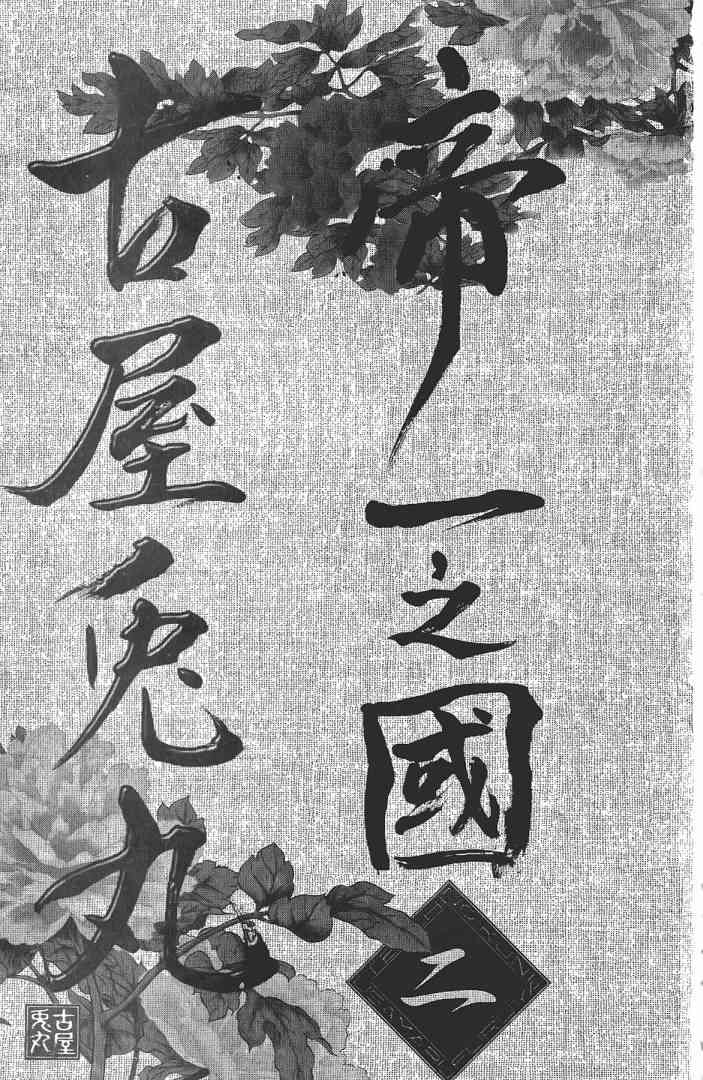 帝一之國
二
古屋兎丸
古屋
兎丸